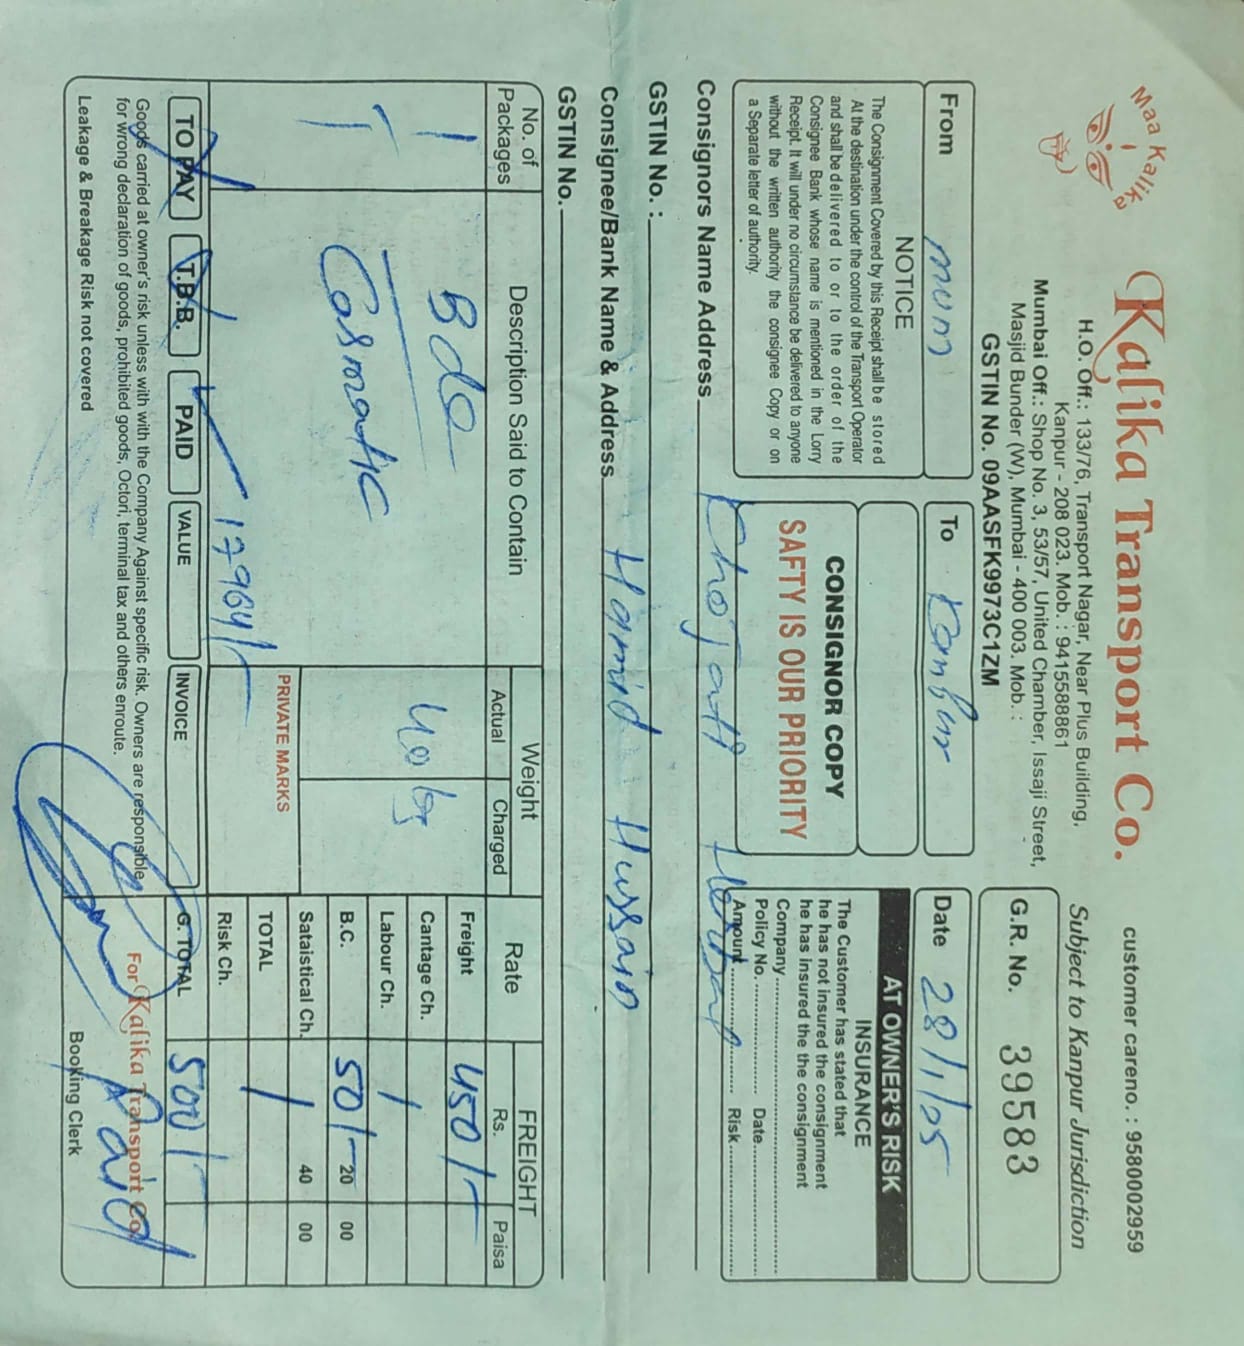 Maa Kalika
Kalika Transport Co.
customer careno. : 9580002959
H.O. Off.: 133/76, Transport Nagar, Near Plus Building,
Kanpur - 208 023. Mob. : 9415588861
Subject to Kanpur Jurisdiction
Mumbai Off.: Shop No. 3, 53/57, United Chamber, Issaji Street,
Masjid Bunder (W), Mumbai - 400 003. Mob. :
GSTIN No. 09AASFK9973C1ZM
G.R. No. 39583
From mum
To
Date 28/1/25
NOTICE
The Consignment Covered by this Receipt shall be stored
At the destination under the control of the Transport Operator
and shall be delivered to or to the order of the
Consignee Bank whose name is mentioned in the Lorry
Receipt. It will under no circumstance be delivered to anyone
without the written authority the consignee Copy or on
a Separate letter of authority.
CONSIGNOR COPY
SAFTY IS OUR PRIORITY
AT OWNER'S RISK
INSURANCE
The Customer has stated that
he has not insured the consignment
he has insured the the consignment
Company
Policy No. Date
Amount Risk
Consignors Name Address Herbal
GSTIN No. :
Consignee/Bank Name & Address Hamid Hussain
GSTIN No.
No. of Packages
Description Said to Contain
Weight
Actual
Charged
Rate
FREIGHT
Rs.
Paisa
1 Bdl
Cosmatic
Freight 450/-
Cantage Ch.
Labour Ch. /
B.C. 50/- 20 00
Sataistical Ch. / 40 00
TOTAL /
Risk Ch.
G. TOTAL 500/-
PRIVATE MARKS
17964/-
TO PAY
T.B.B.
PAID
VALUE
INVOICE
Goods carried at owner's risk unless with with the Company Against specific risk. Owners are responsible
for wrong declaration of goods, prohibited goods, Octori, terminal tax and others enroute.
Leakage & Breakage Risk not covered
For Kalika Transport Co.
Paid
Booking Clerk